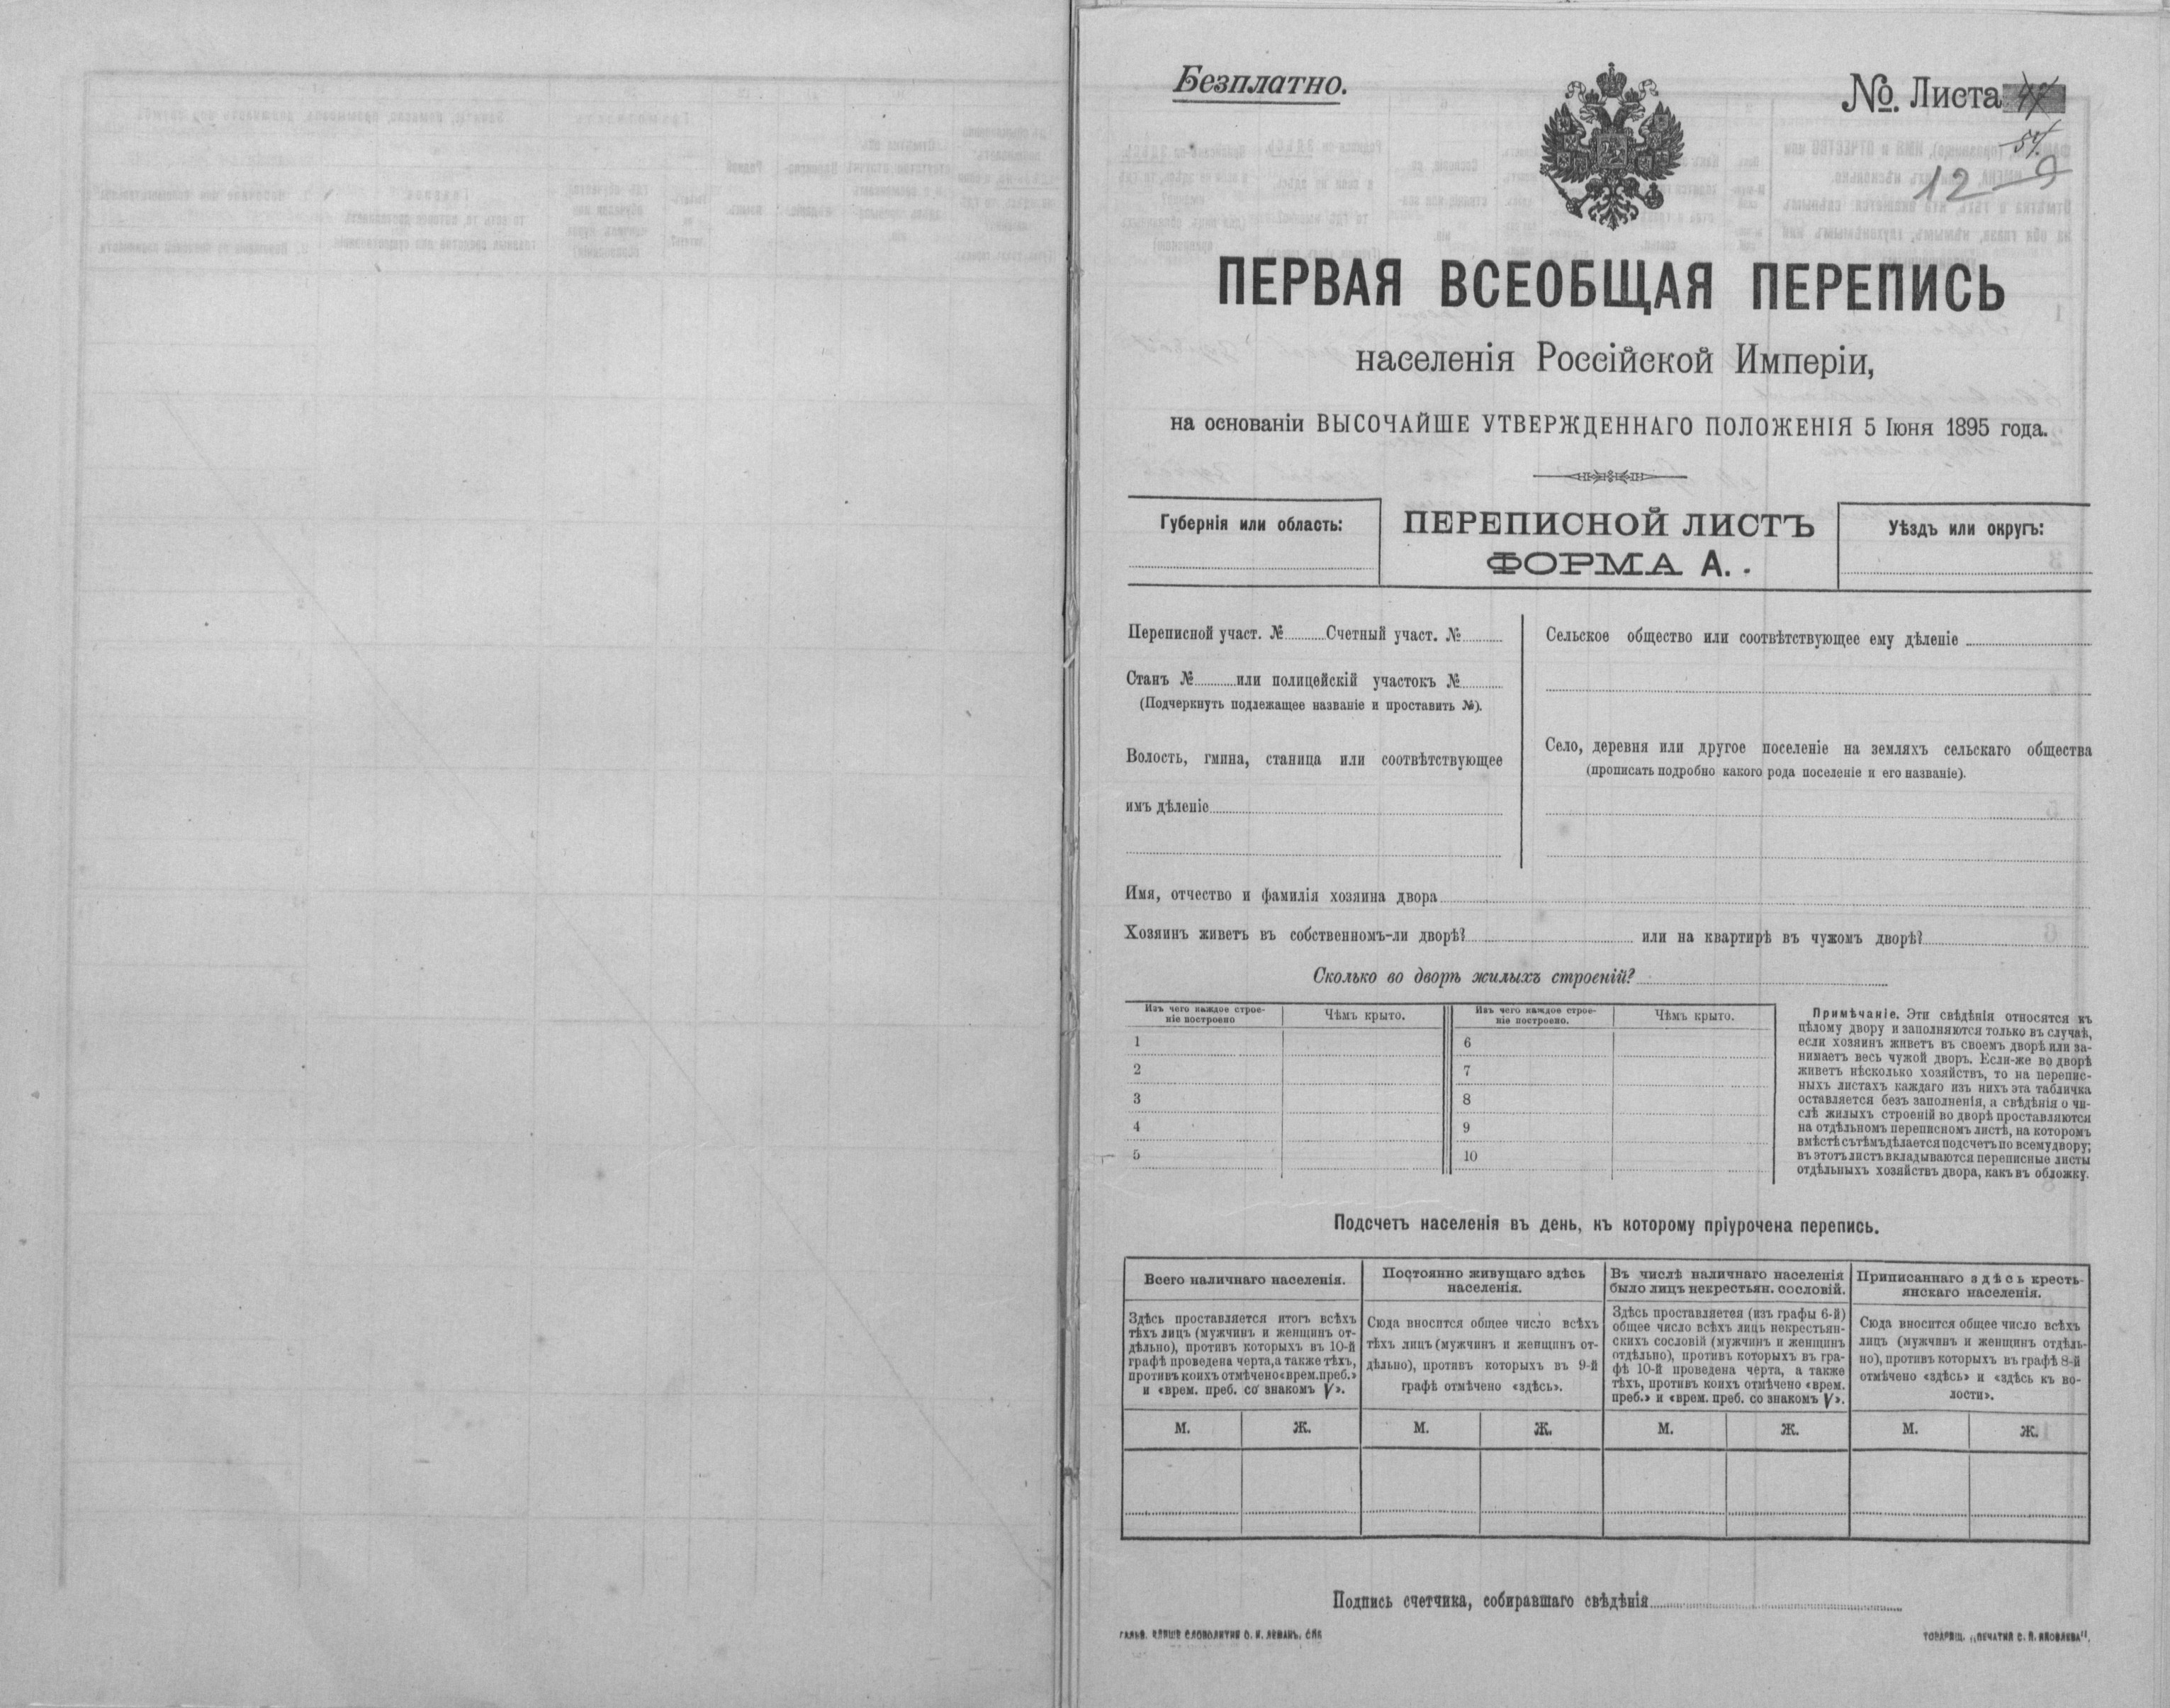 Безплатно.
№. Листа 47
54.
12 9
ПЕРВАЯ ВСЕОБЩАЯ ПЕРЕПИСЬ
населенія Россійской Имперіи,
на основаніи ВЫСОЧАЙШЕ УТВЕРЖДЕННАГО ПОЛОЖЕНІЯ 5 Іюня 1895 года.
Губернія или область:
ПЕРЕПИСНОЙ ЛИСТЪ
ФОРМА А.
Уѣздъ или округъ:
Переписной участ. № Счетный участ. №
Станъ № или полицейскій участокъ №
(Подчеркнуть подлежащее названіе и проставить №).
Волость, гмина, станица или соотвѣтствующее
имъ дѣленіе
Сельское общество или соотвѣтствующее ему дѣленіе
Село, деревня или другое поселеніе на земляхъ сельскаго общества
(прописать подробно какого рода поселеніе и его названіе).
Имя, отчество и фамилія хозяина двора
Хозяинъ живетъ въ собственномъ-ли дворѣ? или на квартирѣ въ чужомъ дворѣ?
Сколько во дворѣ жилыхъ строеній?
Изъ чего каждое строе-
ніе построено
Чѣмъ крыто.
Изъ чего каждое строе-
ніе построено.
Чѣмъ крыто.
1 6
2 7
3 8
4 9
5 10
Примѣчаніе. Эти свѣдѣнія относятся къ
цѣлому двору и заполняются только въ случаѣ,
если хозяинъ живетъ въ своемъ дворѣ или за-
нимаетъ весь чужой дворъ. Если-же во дворѣ
живетъ нѣсколько хозяйствъ, то на перепис-
ныхъ листахъ каждаго изъ нихъ эта табличка
оставляется безъ заполненія, а свѣдѣнія о чи-
слѣ жилыхъ строеній во дворѣ проставляются
на отдѣльномъ переписномъ листѣ, на которомъ
вмѣстѣ съ тѣмъ дѣлается подсчетъ по всему двору;
въ этотъ листъ вкладываются переписные листы
отдѣльныхъ хозяйствъ двора, какъ въ обложку.
Подсчетъ населенія въ день, къ которому пріурочена перепись.
Всего наличнаго населенія.
Здѣсь проставляется итогъ всѣхъ
тѣхъ лицъ (мужчинъ и женщинъ от-
дѣльно), противъ которыхъ въ 10-й
графѣ проведена черта, а также тѣхъ,
противъ коихъ отмѣчено «врем. преб.»
и «врем. преб. со знакомъ V».
Постоянно живущаго здѣсь
населенія.
Сюда вносится общее число всѣхъ
тѣхъ лицъ (мужчинъ и женщинъ от-
дѣльно), противъ которыхъ въ 9-й
графѣ отмѣчено «здѣсь».
Въ числѣ наличнаго населенія
было лицъ некрестьян. сословій.
Здѣсь проставляется (изъ графы 6-й)
общее число всѣхъ лицъ некрестьян-
скихъ сословій (мужчинъ и женщинъ
отдѣльно), противъ которыхъ въ гра-
фѣ 10-й проведена черта, а также
тѣхъ, противъ коихъ отмѣчено «врем.
преб.» и «врем. преб. со знакомъ V».
Приписаннаго здѣсь кресть-
янскаго населенія.
Сюда вносится общее число всѣхъ
лицъ (мужчинъ и женщинъ отдѣль-
но), противъ которыхъ въ графѣ 8-й
отмѣчено «здѣсь» и «здѣсь къ во-
лости».
М. Ж. М. Ж. М. Ж. М. Ж.
Подпись счетчика, собиравшаго свѣдѣнія
ГАЛЬВ. КЛИШЕ СЛОВОЛИТНИ О. И. ЛЕМАНЪ. СПБ
ТОВАРИЩ. „ПЕЧАТНЯ С. П. ЯКОВЛЕВА".